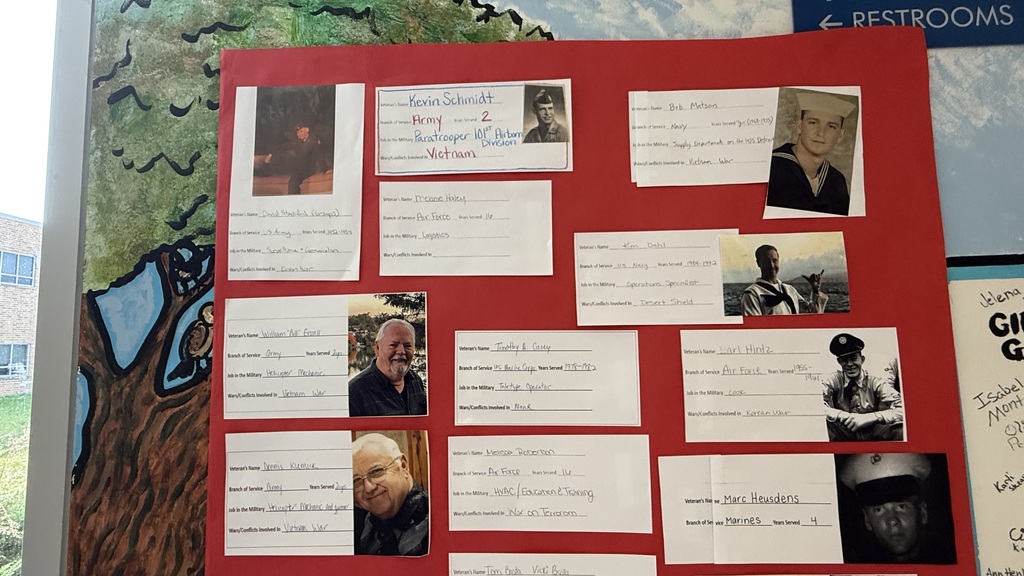 ← RESTROOMS
Veteran's Name David (Grandpa)
Branch of Service U.S. Army Years Served 1952-1953
Job in the Military + Communication
Wars/Conflicts Involved in Korean War
Veteran's Name Kevin Schmidt
Branch of Service Army Years Served 2
Job in the Military Paratrooper 101st Airborn
Division
Wars/Conflicts Involved in Vietnam
Veteran's Name Bob Matson
Branch of Service Navy Years Served
Job in the Military Supply Department on the USS
Wars/Conflicts Involved in Vietnam War
Veteran's Name Haley
Branch of Service Air Force Years Served 16
Job in the Military Logistics
Wars/Conflicts Involved in
Veteran's Name Ken Dahl
Branch of Service U.S. Navy Years Served 1984-1992
Job in the Military Operations Specialist
Wars/Conflicts Involved in Desert Shield
Veteran's Name William "Bill"
Branch of Service Army Years Served 2yrs
Job in the Military Helicopter Mechanic
Wars/Conflicts Involved in Vietnam War
Veteran's Name Timothy R.
Branch of Service US Marine Corps Years Served 1978-1982
Job in the Military Teletype Operator
Wars/Conflicts Involved in None
Veteran's Name Earl Hintz
Branch of Service Air Force Years Served 1955-
Job in the Military Cook
Wars/Conflicts Involved in Korean War
Veteran's Name Dennis
Branch of Service Army Years Served 2yrs
Job in the Military Helicopter Mechanic and gunner
Wars/Conflicts Involved in Vietnam War
Veteran's Name Melissa Roberton
Branch of Service Air Force Years Served 16
Job in the Military HVAC/Education & Training
Wars/Conflicts Involved in War on Terrorism
Veteran's Name Marc Heusdens
Branch of Service Marines Years Served 4
Veteran's Name Tom Vicki
Jelena
Isabel
Mont